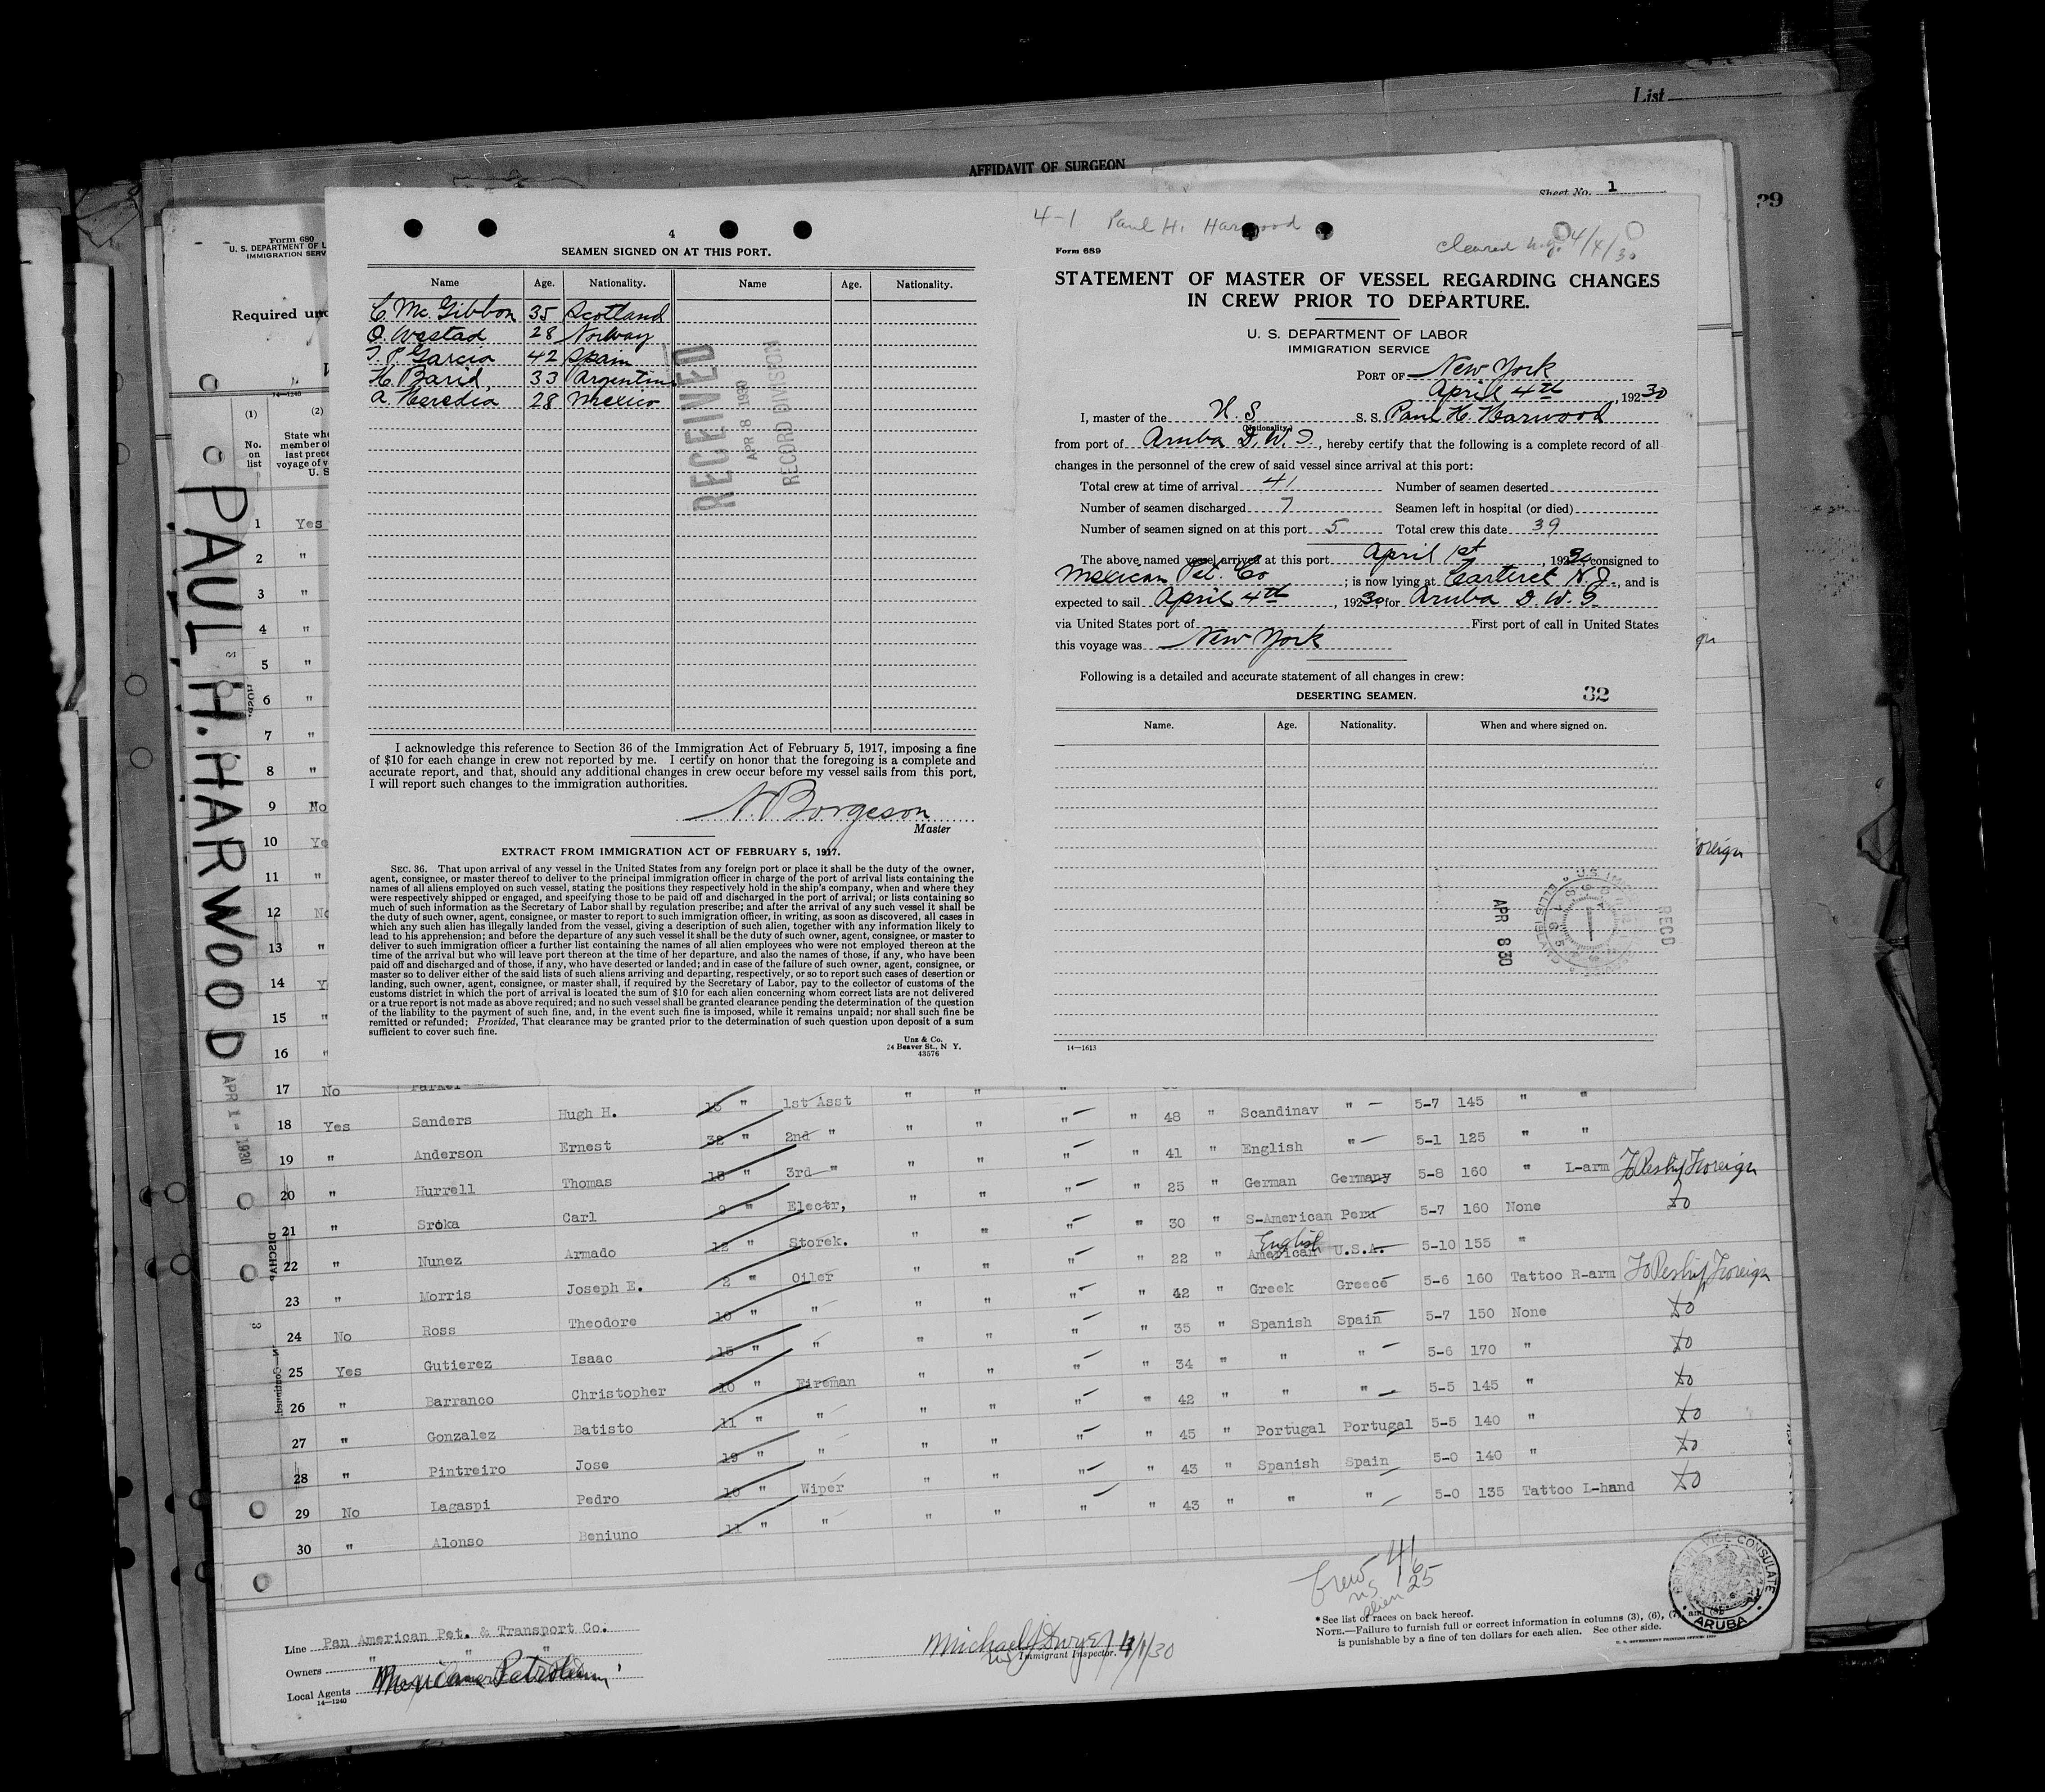 List
AFFIDAVIT OF SURGEON
Sheet No. 1
39
Form 680
U. S. DEPARTMENT OF L
IMMIGRATION SERV
Required und
14—1240
(1) (2)
No. on list
State whe
member of
last prece
voyage of v
U. S
PAUL H. HARWOOD
APR 1 - 1930
1 Yes
2 "
3 "
4 "
5 "
6 "
7 "
8 "
9 No
10 Ye
11 "
12 No
13 "
14 Y
15 "
16 "
4
SEAMEN SIGNED ON AT THIS PORT.
Name Age. Nationality. Name Age. Nationality.
C. Mc. Gibbon 35 Scotland
O. Westad 28 Norway
T. P. Garcia 42 Spain
H. Barid, 33 Argentine
A. Heredia 28 Mexico
RECEIVED
APR 8 1930
RECORD DIVISION
I acknowledge this reference to Section 36 of the Immigration Act of February 5, 1917, imposing a fine
of $10 for each change in crew not reported by me. I certify on honor that the foregoing is a complete and
accurate report, and that, should any additional changes in crew occur before my vessel sails from this port,
I will report such changes to the immigration authorities.
N. Borgeson
Master
EXTRACT FROM IMMIGRATION ACT OF FEBRUARY 5, 1917.
SEC. 36. That upon arrival of any vessel in the United States from any foreign port or place it shall be the duty of the owner,
agent, consignee, or master thereof to deliver to the principal immigration officer in charge of the port of arrival lists containing the
names of all aliens employed on such vessel, stating the positions they respectively hold in the ship's company, when and where they
were respectively shipped or engaged, and specifying those to be paid off and discharged in the port of arrival; or lists containing so
much of such information as the Secretary of Labor shall by regulation prescribe; and after the arrival of any such vessel it shall be
the duty of such owner, agent, consignee, or master to report to such immigration officer, in writing, as soon as discovered, all cases in
which any such alien has illegally landed from the vessel, giving a description of such alien, together with any information likely to
lead to his apprehension; and before the departure of any such vessel it shall be the duty of such owner, agent, consignee, or master to
deliver to such immigration officer a further list containing the names of all alien employees who were not employed thereon at the
time of the arrival but who will leave port thereon at the time of her departure, and also the names of those, if any, who have been
paid off and discharged and of those, if any, who have deserted or landed; and in case of the failure of such owner, agent, consignee, or
master so to deliver either of the said lists of such aliens arriving and departing, respectively, or so to report such cases of desertion or
landing, such owner, agent, consignee, or master, shall, if required by the Secretary of Labor, pay to the collector of customs of the
customs district in which the port of arrival is located the sum of $10 for each alien concerning whom correct lists are not delivered
or a true report is not made as above required; and no such vessel shall be granted clearance pending the determination of the question
of the liability to the payment of such fine, and, in the event such fine is imposed, while it remains unpaid; nor shall such fine be
remitted or refunded; Provided, That clearance may be granted prior to the determination of such question upon deposit of a sum
sufficient to cover such fine.
Unz & Co.
24 Beaver St., N Y.
43576
4-1 Paul H. Harwood
cleared 4/4/30
Form 689
STATEMENT OF MASTER OF VESSEL REGARDING CHANGES
IN CREW PRIOR TO DEPARTURE.
U. S. DEPARTMENT OF LABOR
IMMIGRATION SERVICE
PORT OF New York
April 4th, 19230
I, master of the U. S. S. S. Paul H. Harwood
(Nationality)
from port of Aruba D. W. I., hereby certify that the following is a complete record of all
changes in the personnel of the crew of said vessel since arrival at this port:
Total crew at time of arrival 41 Number of seamen deserted
Number of seamen discharged 7 Seamen left in hospital (or died)
Number of seamen signed on at this port 5 Total crew this date 39
The above named vessel arrived at this port April 1st, 19230 consigned to
Mexican Pet. Co; is now lying at Carteret N. J., and is
expected to sail April 4th, 19230, for Aruba D. W. I.
via United States port of First port of call in United States
this voyage was New York
Following is a detailed and accurate statement of all changes in crew:
DESERTING SEAMEN. 32
Name. Age. Nationality. When and where signed on.
APR 8 30
RECD
14—1613
oreign
17 No Parker
18 Yes Sanders Hugh H. 15 " 1st Asst " " " " 48 " Scandinav " 5-7 145 " "
19 " Anderson Ernest 32 " 2nd " " " " " 41 " English " 5-1 125 " "
20 " Hurrell Thomas 18 " 3rd " " " " " 25 " German Germany 5-8 160 " L-arm To Reship Foreign
21 " Sroka Carl 9 " Electr, " " " " 30 " S-American Peru 5-7 160 None do
22 " Nunez Armado 12 " Storek. " " " " 22 " American English U.S.A. 5-10 155 "
23 " Morris Joseph E. 2 " Oiler " " " " 42 " Greek Greece 5-6 160 Tattoo R-arm To Reship Foreign
24 No Ross Theodore 10 " " " " " " 35 " Spanish Spain 5-7 150 None do
25 Yes Gutierez Isaac 15 " " " " " " 34 " " " 5-6 170 " do
26 " Barranco Christopher 10 " Fireman " " " " 42 " " " 5-5 145 " do
27 " Gonzalez Batisto 11 " " " " " " 45 " Portugal Portugal 5-5 140 " do
28 " Pintreiro Jose 19 " " " " " " 43 " Spanish Spain 5-0 140 " do
29 No Lagaspi Pedro 10 " Wiper " " " " 43 " " " 5-0 135 Tattoo L-hand do
30 " Alonso Beniuno 11 " " " "
Crew 41
US 16
alien 25
*See list of races on back hereof.
NOTE.—Failure to furnish full or correct information in columns (3), (6), (7), and (8)
is punishable by a fine of ten dollars for each alien. See other side.
BRITISH VICE CONSULATE ARUBA
Line Pan American Pet. & Transport Co.
Owners " " "
Local Agents Mexican Petroleum
14—1240
Michael J Dwyer 4/1/30
Immigrant Inspector.